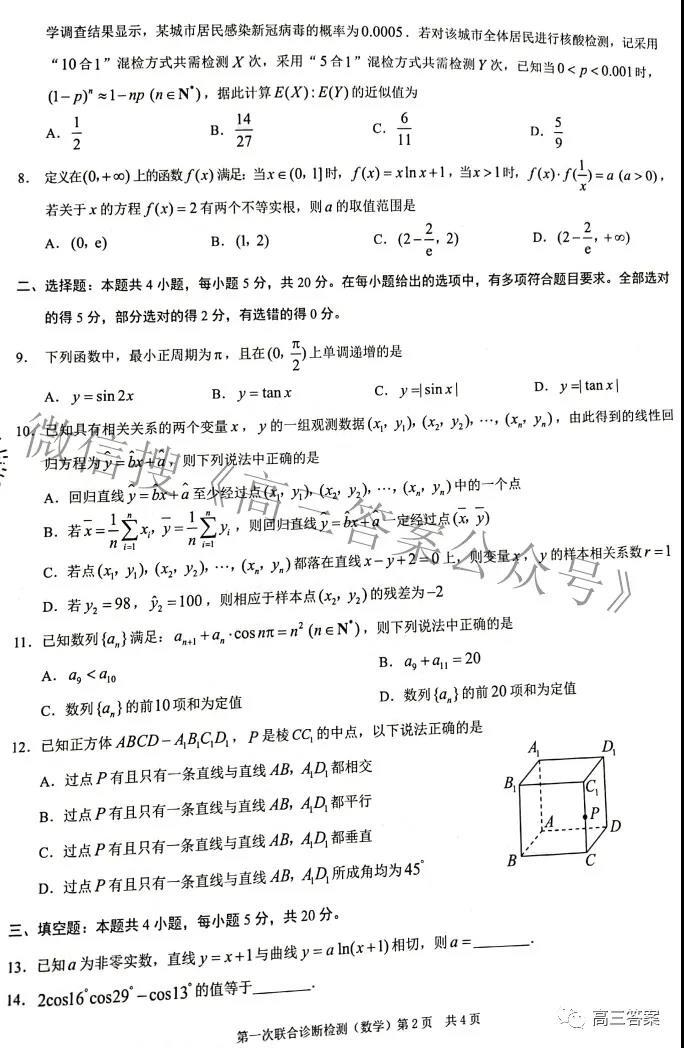 学调查结果显示，某城市居民感染新冠病毒的概率为0.0005．若对该城市全体居民进行核酸检测，记采用
“10合1”混检方式共需检测X次，采用“5合1”混检方式共需检测Y次，已知当0<p<0.001时，
(1−p)ⁿ≈1−np (n∈N*)，据此计算E(X):E(Y)的近似值为
A. 1/2 B. 14/27 C. 6/11 D. 5/9
8. 定义在(0,+∞)上的函数f(x)满足：当x∈(0, 1]时，f(x)=xlnx+1，当x>1时，f(x)·f(1/x)=a (a>0)，
若关于x的方程f(x)=2有两个不等实根，则a的取值范围是
A. (0, e) B. (1, 2) C. (2−2/e, 2) D. (2−2/e, +∞)
二、选择题：本题共4小题，每小题5分，共20分。在每小题给出的选项中，有多项符合题目要求。全部选对
的得5分，部分选对的得2分，有选错的得0分。
9. 下列函数中，最小正周期为π，且在(0, π/2)上单调递增的是
A. y=sin2x B. y=tanx C. y=|sinx| D. y=|tanx|
10. 已知具有相关关系的两个变量x，y的一组观测数据(x₁, y₁), (x₂, y₂), ⋯, (xₙ, yₙ)，由此得到的线性回
归方程为ŷ=b̂x+â，则下列说法中正确的是
A. 回归直线ŷ=b̂x+â至少经过点(x₁, y₁), (x₂, y₂), ⋯, (xₙ, yₙ)中的一个点
B. 若x̄=1/n∑ⁿᵢ₌₁xᵢ, ȳ=1/n∑ⁿᵢ₌₁yᵢ，则回归直线ŷ=b̂x+â一定经过点(x̄, ȳ)
C. 若点(x₁, y₁), (x₂, y₂), ⋯, (xₙ, yₙ)都落在直线x−y+2=0上，则变量x，y的样本相关系数r=1
D. 若y₂=98，ŷ₂=100，则相应于样本点(x₂, y₂)的残差为−2
11. 已知数列{aₙ}满足：aₙ₊₁+aₙ·cosnπ=n² (n∈N*)，则下列说法中正确的是
A. a₉<a₁₀ B. a₉+a₁₁=20
C. 数列{aₙ}的前10项和为定值 D. 数列{aₙ}的前20项和为定值
12. 已知正方体ABCD−A₁B₁C₁D₁，P是棱CC₁的中点，以下说法正确的是
A. 过点P有且只有一条直线与直线AB，A₁D₁都相交
B. 过点P有且只有一条直线与直线AB，A₁D₁都平行
C. 过点P有且只有一条直线与直线AB，A₁D₁都垂直
D. 过点P有且只有一条直线与直线AB，A₁D₁所成角均为45°
A₁ D₁
B₁ C₁
P
A D
B C
三、填空题：本题共4小题，每小题5分，共20分。
13. 已知a为非零实数，直线y=x+1与曲线y=aln(x+1)相切，则a=______.
14. 2cos16°cos29°−cos13°的值等于______.
第一次联合诊断检测（数学）第2页 共4页
微信搜《高三答案公众号》
高三答案